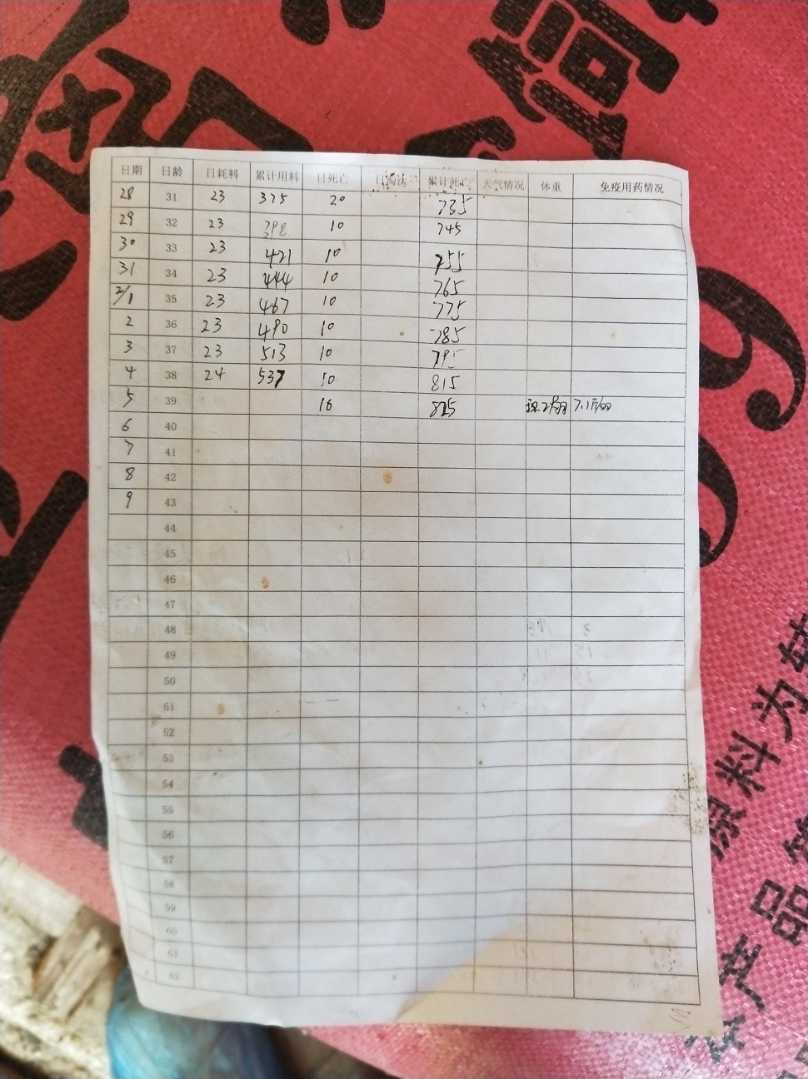 日期 日龄 日耗料 累计用料 日死亡 累计死亡 天气情况 体重 免疫用药情况
28 31 23 375 20 735
29 32 23 398 10 745
30 33 23 421 10 755
31 34 23 444 10 765
2/1 35 23 467 10 775
2 36 23 490 10 785
3 37 23 513 10 795
4 38 24 537 10 815
5 39 16 825
6 40
7 41
8 42
9 43
44
45
46
47
48
49
50
51
52
53
54
55
56
57
58
59
60
61
62
99
原料为
农产品